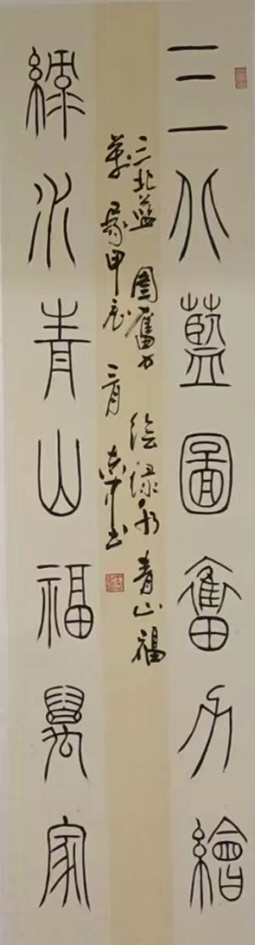 三北藍圖奮力繪
三北蓝圖奮力绘绿水青山福
萬家甲辰三月書
綠水青山福萬家